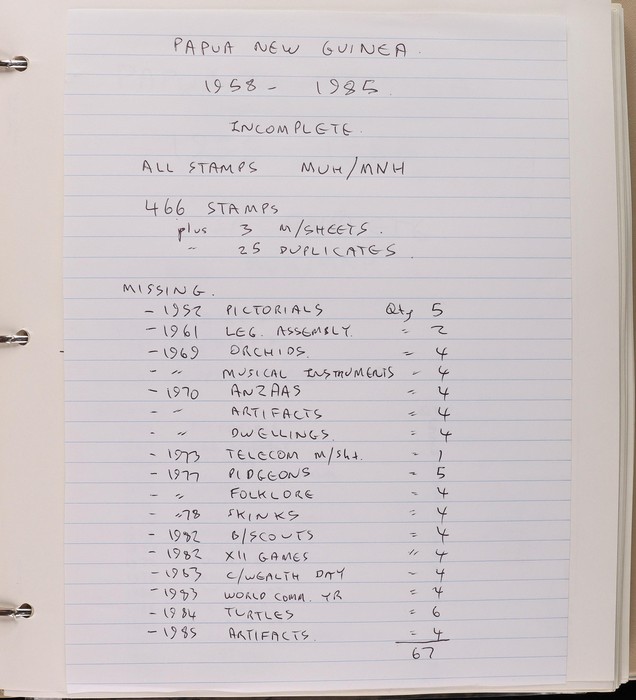 PAPUA NEW GUINEA.
1958 - 1985
INCOMPLETE.
ALL STAMPS MUH/MNH
466 STAMPS
plus 3 M/SHEETS.
" 25 DUPLICATES
MISSING.
- 1952 PICTORIALS Qty 5
- 1961 LEG. ASSEMBLY. " 2
- 1969 ORCHIDS. " 4
- " MUSICAL INSTRUMENTS " 4
- 1970 ANZAAS " 4
- " ARTIFACTS " 4
- " DWELLINGS. " 4
- 1973 TELECOM M/Sht. " 1
- 1977 PIDGEONS " 5
- " FOLKLORE " 4
- "78 SKINKS " 4
- 1982 B/SCOUTS " 4
- 1982 XII GAMES " 4
- 1983 C/WEALTH DAY " 4
- 1983 WORLD COMM. YR " 4
- 1984 TURTLES " 6
- 1985 ARTIFACTS. " 4
67